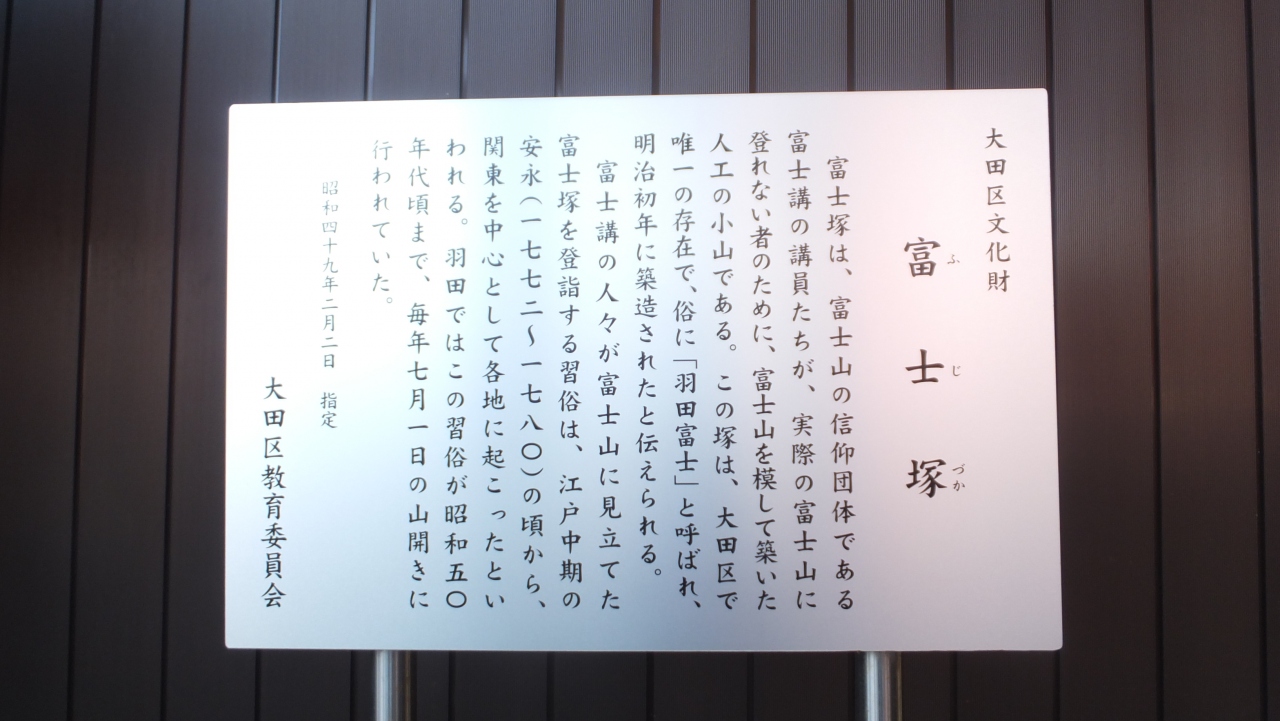 大田区文化財
富士塚
ふじづか
富士塚は、富士山の信仰団体である
富士講の講員たちが、実際の富士山に
登れない者のために、富士山を模して築いた
人工の小山である。この塚は、大田区で
唯一の存在で、俗に「羽田富士」と呼ばれ、
明治初年に築造されたと伝えられる。
富士講の人々が富士山に見立てた
富士塚を登詣する習俗は、江戸中期の
安永(一七七二〜一七八〇)の頃から、
関東を中心として各地に起こったとい
われる。羽田ではこの習俗が昭和五〇
年代頃まで、毎年七月一日の山開きに
行われていた。
昭和四十九年二月二日 指定
大田区教育委員会